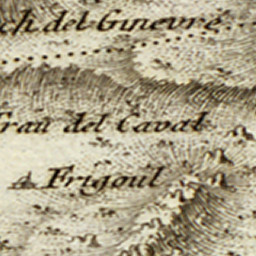 ch del Ginevré
Grau del Caval
A Frigoul